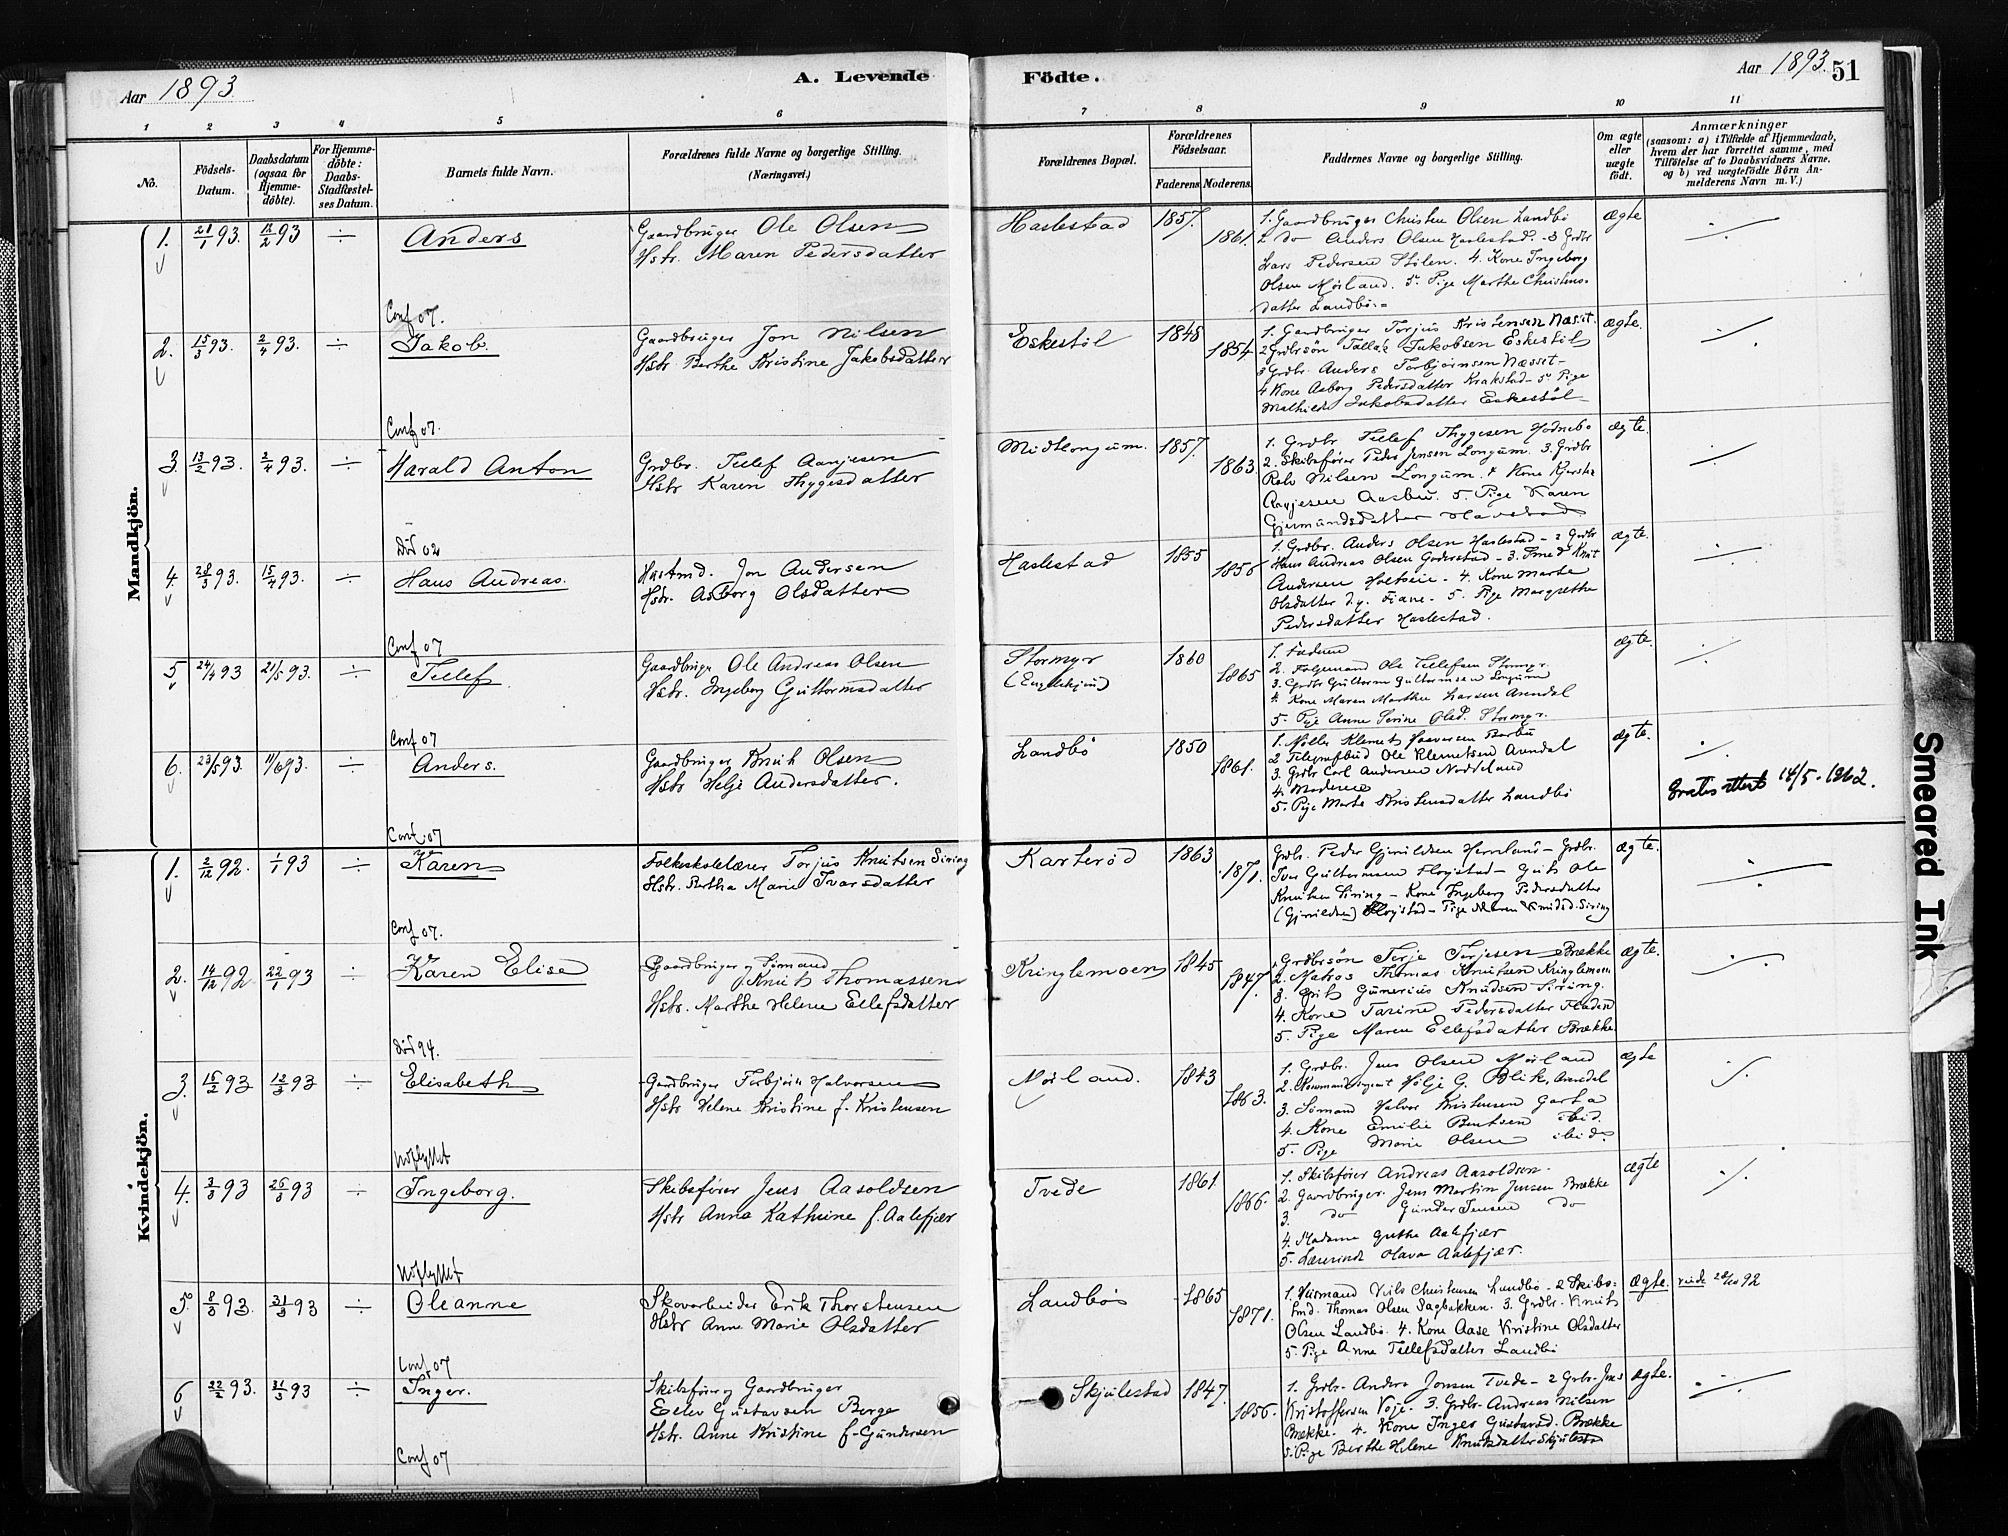 Aar 1893.
A. Levende
Födte.
Aar 1893. 51
1 2 3 4 5 6 7 8 9 10 11
No.
Födsels-
Datum.
Daabsdatum
(ogsaa for
Hjemme-
döbte).
For Hjemme-
döbte:
Daabs-
Stadfæstel-
ses Datum.
Barnets fulde Navn.
Forældrenes fulde Navne og borgerlige Stilling.
(Næringsvei.)
Forældrenes Bopæl.
Forældrenes
Födselsaar.
Faderens. Moderens.
Faddernes Navne og borgerlige Stilling.
Om ægte
eller
uægte
födt.
Anmærkninger
(saasom: a) i Tilfælde af Hjemmedaab,
hvem der har forrettet samme, med
Tilföielse af to Daabsvidners Navne.
og b) ved uægtefödte Börn An-
melderens Navn m. V.)
Mandkjön.
1. 21/1 93. 12/2 93 ÷ Anders
Gaardbruger Ole Olsen
Hstr. Maren Pedersdatter
Conf 07.
Haslestad 1857. 1861.
1. Gaardbruger Christen Olsen Landbö
2 do Anders Olsen Haslestad. - 3 Grdbr
Lars Pedersen Stölen. 4. Kone Ingeborg
Olsen Mörland. 5. Pige Marthe Christens-
datter Landbö.
ægte ÷
2. 15/3 93. 2/4 93. ÷ Jakob.
Gaardbruger Jon Nilsen
Hstr. Berthe Kristine Jakobsdatter
Conf 07.
Eskestöl 1848 1854
1. Gaardbruger Torjus Kristensen Næset.
2 Grdbrsön Tallak Jakobsen Eskestöl
3 Grdbr. Anders Torbjörnsen Næsset-
4 Kone Asborg Pedersdatter Krakstad - 5. Pige
Mathilde Jakobsdatter Eskestöl
ægte. ÷
3. 13/2 93. 2/4 93. ÷ Harald Anton
Grdbr. Tellef Aanjesen
Hstr Karen Thygesdatter
Död 02
Midtlongum. 1857. 1863.
1. Grdbr Tellef Thygesen Hodnebo
2. Skibsförer Peder Jensen Longum. 3. Grdbr
Rolv Nilsen Longum. 4 Kone Kjersti
Aanjesen Aasbu. 5. Pige Karen
Gjermundsdatter
ægte. ÷
4. 28/3 93. 15/4 93. ÷ Hans Andreas.
Jon Andersen
Hstr. Asborg Olsdatter
Conf 07
Haslestad 1855 1856
1. Grdbr. Anders Olsen Haslestad - 2 Grdbr
Hans Andreas Olsen Goderstad - 3. Smed Knut
Andersen - 4. Kone Marte
Olsdatter Fiane - 5. Pige Margrethe
Pedersdatter Haslestad.
ægte. ÷
5 24/4 93 21/5 93. ÷ Tellef
Gaardbruger Ole Andreas Olsen
Hstr. Ingeborg Guttormsdatter
Conf 07
Stormyr 1860 1865
1. Faderen
2. Ole Tellefsen Stormyr.
3. Grdbr Guttorm Guttormsen Longum
4. Kone Maren Marthea Larsen Arendal
5. Pige Anne Serine Olsd. Stormyr.
ægte. ÷
6. 23/5 93. 11/6 93. ÷ Anders.
Gaardbruger Knut Olsen
Hstr Helje Andersdatter.
Conf. 07
Landbö 1850 1861.
1. Möller Klemet Halvorsen Barbu
2 Telegrafbud Ole Klemetsen Arendal
3. Grdbr Carl Andersen Noddeland
4. Moderen
5. Pige Marte Kristensdatter Landbö
ægte. ÷
Gratis attest 14/5 - 1962.
Kvindekjön.
1. 2/12 92. 1/1 93 ÷ Karen
Folkeskolelærer Torjus Knutsen Siring
Hstr. Bertha Marie Ivarsdatter
Conf 07.
Karteröd 1863 1871.
Grdbr. Peder Gjeruldsen - Grdbr.
Iver Guttormsen Flöystad - Gut Ole
Knutsen Siring - Kone Ingeborg Pedersdatter
(Gjeruldsen) Flöystad - Pige Maren Knudsd. Siring
ægte. ÷
2. 14/12 92. 22/1 93 ÷ Karen Elise
Gaardbruger og Sömand
Knut Thomassen
Hstr. Marthe Helene Ellefsdatter
Död 94.
Kringlemoen 1845 1847.
1. Grdbrsön Terje Terjesen Brække
2. Matros Thomas Knutsen Kringlemoen
3. Gut Gunerius Knudsen Siring.
4. Kone Tarine Pedersdatter Fladen
5. Pige Maren Ellefsdatter Brække
ægte. ÷
3. 16/2 93 12/3 93 ÷ Elisabeth
Gardbruger Torbjörn Halvorsen
Hstr Helene Kristine f. Kristensen
Udflyttet
Mörland. 1843 1863.
1. Grdbr. Jens Olsen Mörland
2. Hölje G. Blik, Arendal
3. Sömand Halvor Kristensen Garta
4. Kone Emilie Bentsen ibid.
5. Pige Marie Olsen ibid.
ægte ÷
4. 3/3 93 26/3 93 ÷ Ingeborg.
Skibsförer Jens Aasoldsen
Hstr Anna Kathrine f. Aalefjær
Udflyttet
Tvede 1861 1866.
1. Skibsförer Andreas Aasoldsen.
2. Gaardbruger. Jens Martin Jensen Brække
3. do Gunder Jensen do
4. Madame Grethe Aalefjær
5. Lærerinde Olava Aalefjær.
ægte ÷
5. 8/3 93. 31/3 93 ÷ Oleanne
Skovarbeider Erik Thorstensen
Hstr Anne Marie Olsdatter
Conf 07
Landbö 1865 1871.
1. Huusmand Nils Christensen Landbö - 2 Skibs-
tmd. Thomas Olsen Sagbakken. 3. Grdbr. Knut
Olsen Landbö. 4. Kone Aase Kristine Olsdatter
5. Pige Anne Tellefsdatter Landbö
ægte. viede 28/10 92
6 22/2 93. 31/3 93 ÷ Inger.
Skibsförer og Gaardbruger
Ellev Gustavsen Berge
Hstr. Anne Kristine f. Gundersen
Conf 07
Skjulestad 1847. 1856.
1. Grdbr. Anders Jonsen Tvede - 2 Grbr. Jens
Kristoffersen Voje. 3. Grdbr. Andreas Nilsen
Brække. 4. Kone Inger Gustavsd. Brække
5. Pige Berthe Helene Knutsdatter Skjulestad
ægte. ÷
Smeared Ink